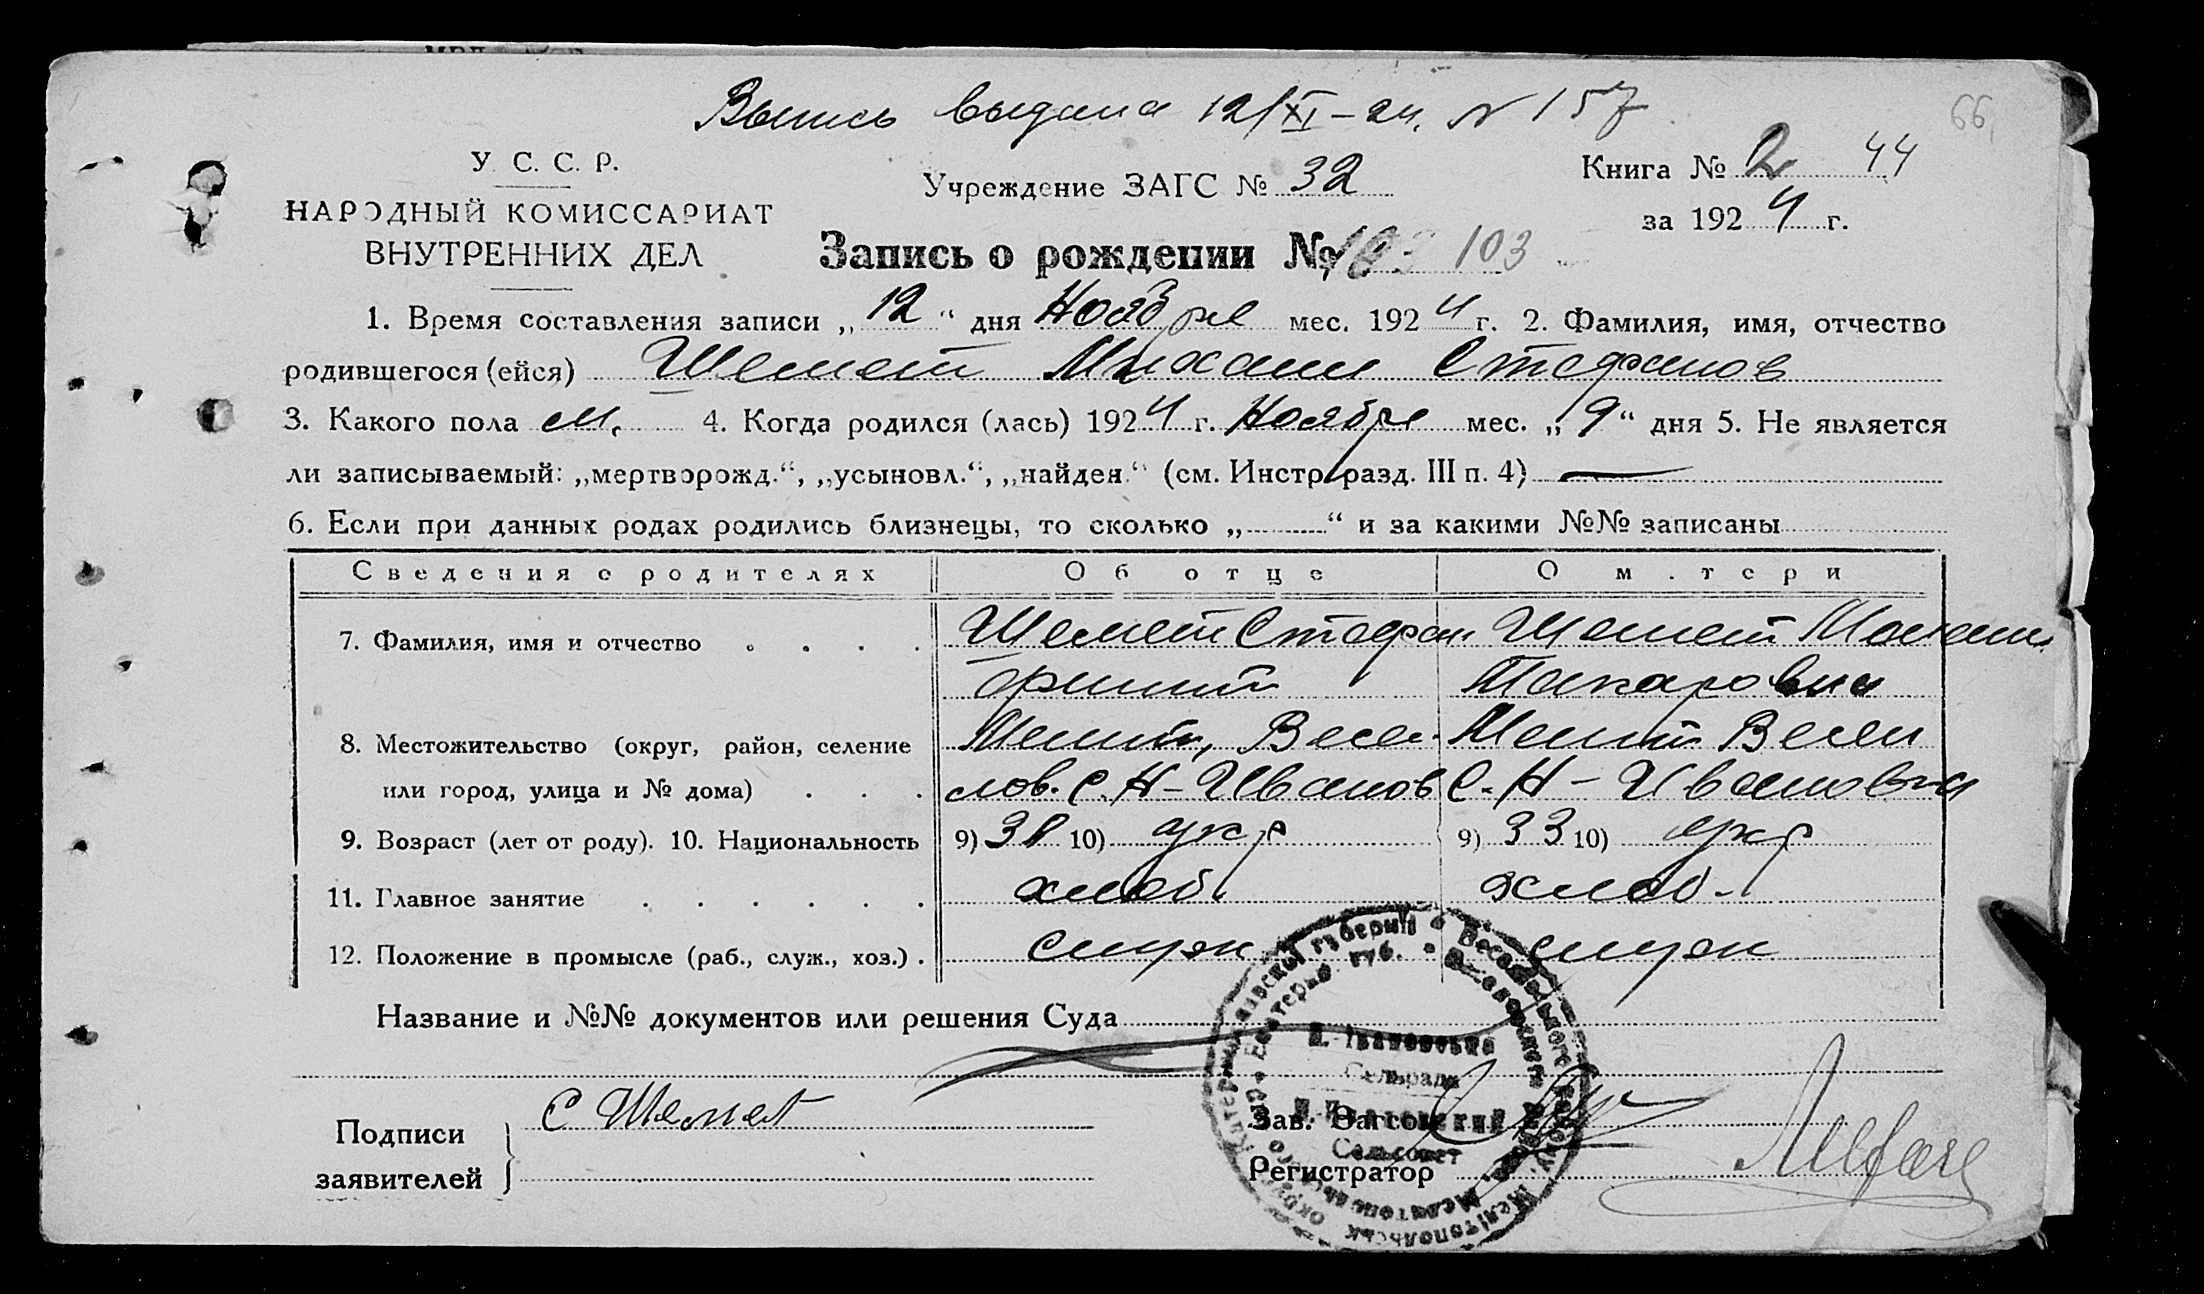 Выпись выдана 12/XI-24. N 157
66
У. С. С. Р.
НАРОДНЫЙ КОМИССАРИАТ
ВНУТРЕННИХ ДЕЛ
Учреждение ЗАГС № 32
Книга № 2 44
за 1924 г.
Запись о рождении № 103 103
1. Время составления записи „12“ дня Ноября мес. 1924 г. 2. Фамилия, имя, отчество
родившегося (ейся) Шемет Михаил Стефанов
3. Какого пола м. 4. Когда родился (лась) 1924 г. Ноября мес. „9“ дня 5. Не является
ли записываемый: „мертворожд.“, „усыновл.“, „найден.“ (см. Инстр. разд. III п. 4) —
6. Если при данных родах родились близнецы, то сколько „.........“ и за какими №№ записаны
Сведения о родителях Об отце О матери
7. Фамилия, имя и отчество Шемет Стефан Шемет
Макаровна
8. Местожительство (округ, район, селение Мелит, Весе- Мелит Весел
или город, улица и № дома) лов. с. Н-Иванов С. Н-Ивановка
9. Возраст (лет от роду). 10. Национальность 9) 38 10) укр 9) 33 10) укр
11. Главное занятие хлеб. хлеб-
12. Положение в промысле (раб., служ., хоз.)
Название и №№ документов или решения Суда
Подписи
заявителей
С Шемет
Зав. Загсом
Регистратор
Н.-Іванівська
Сельрада
Н.-Ивановский
Сельсовет